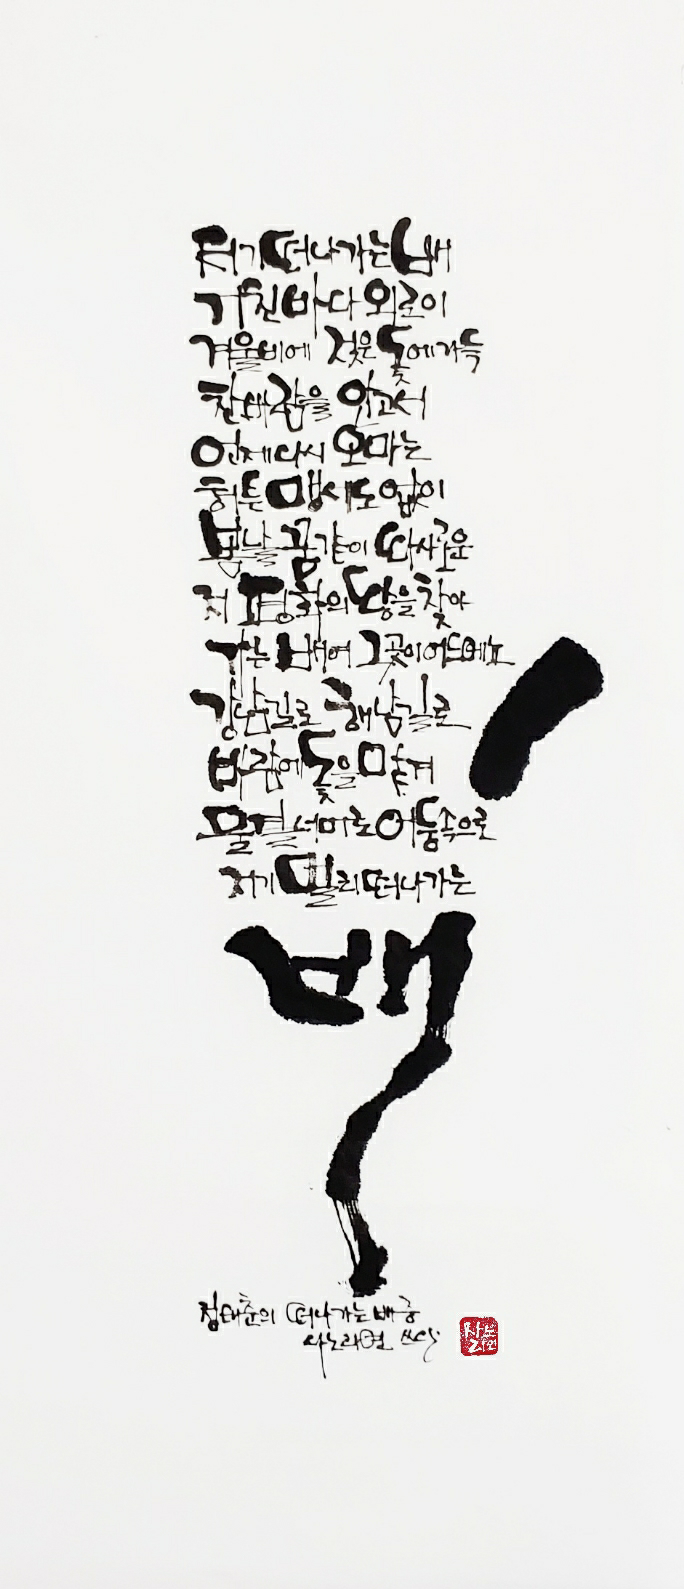 저기 떠나가는 배
거친 바다 외로이
겨울비에 젖은 돛에 가득
찬바람을 안고서
언제 다시 오마는
허튼 맹세도 없이
봄날 꿈같이 따사로운
저 평화의 땅을 찾아
가는 배여 그곳이 어드메뇨
강남길로 해남길로
바람에 돛을 맡겨
물결 너머로 어둠속으로
저기 멀리 떠나가는
배
정태춘의 떠나가는 배 중
사노라면 쓰다